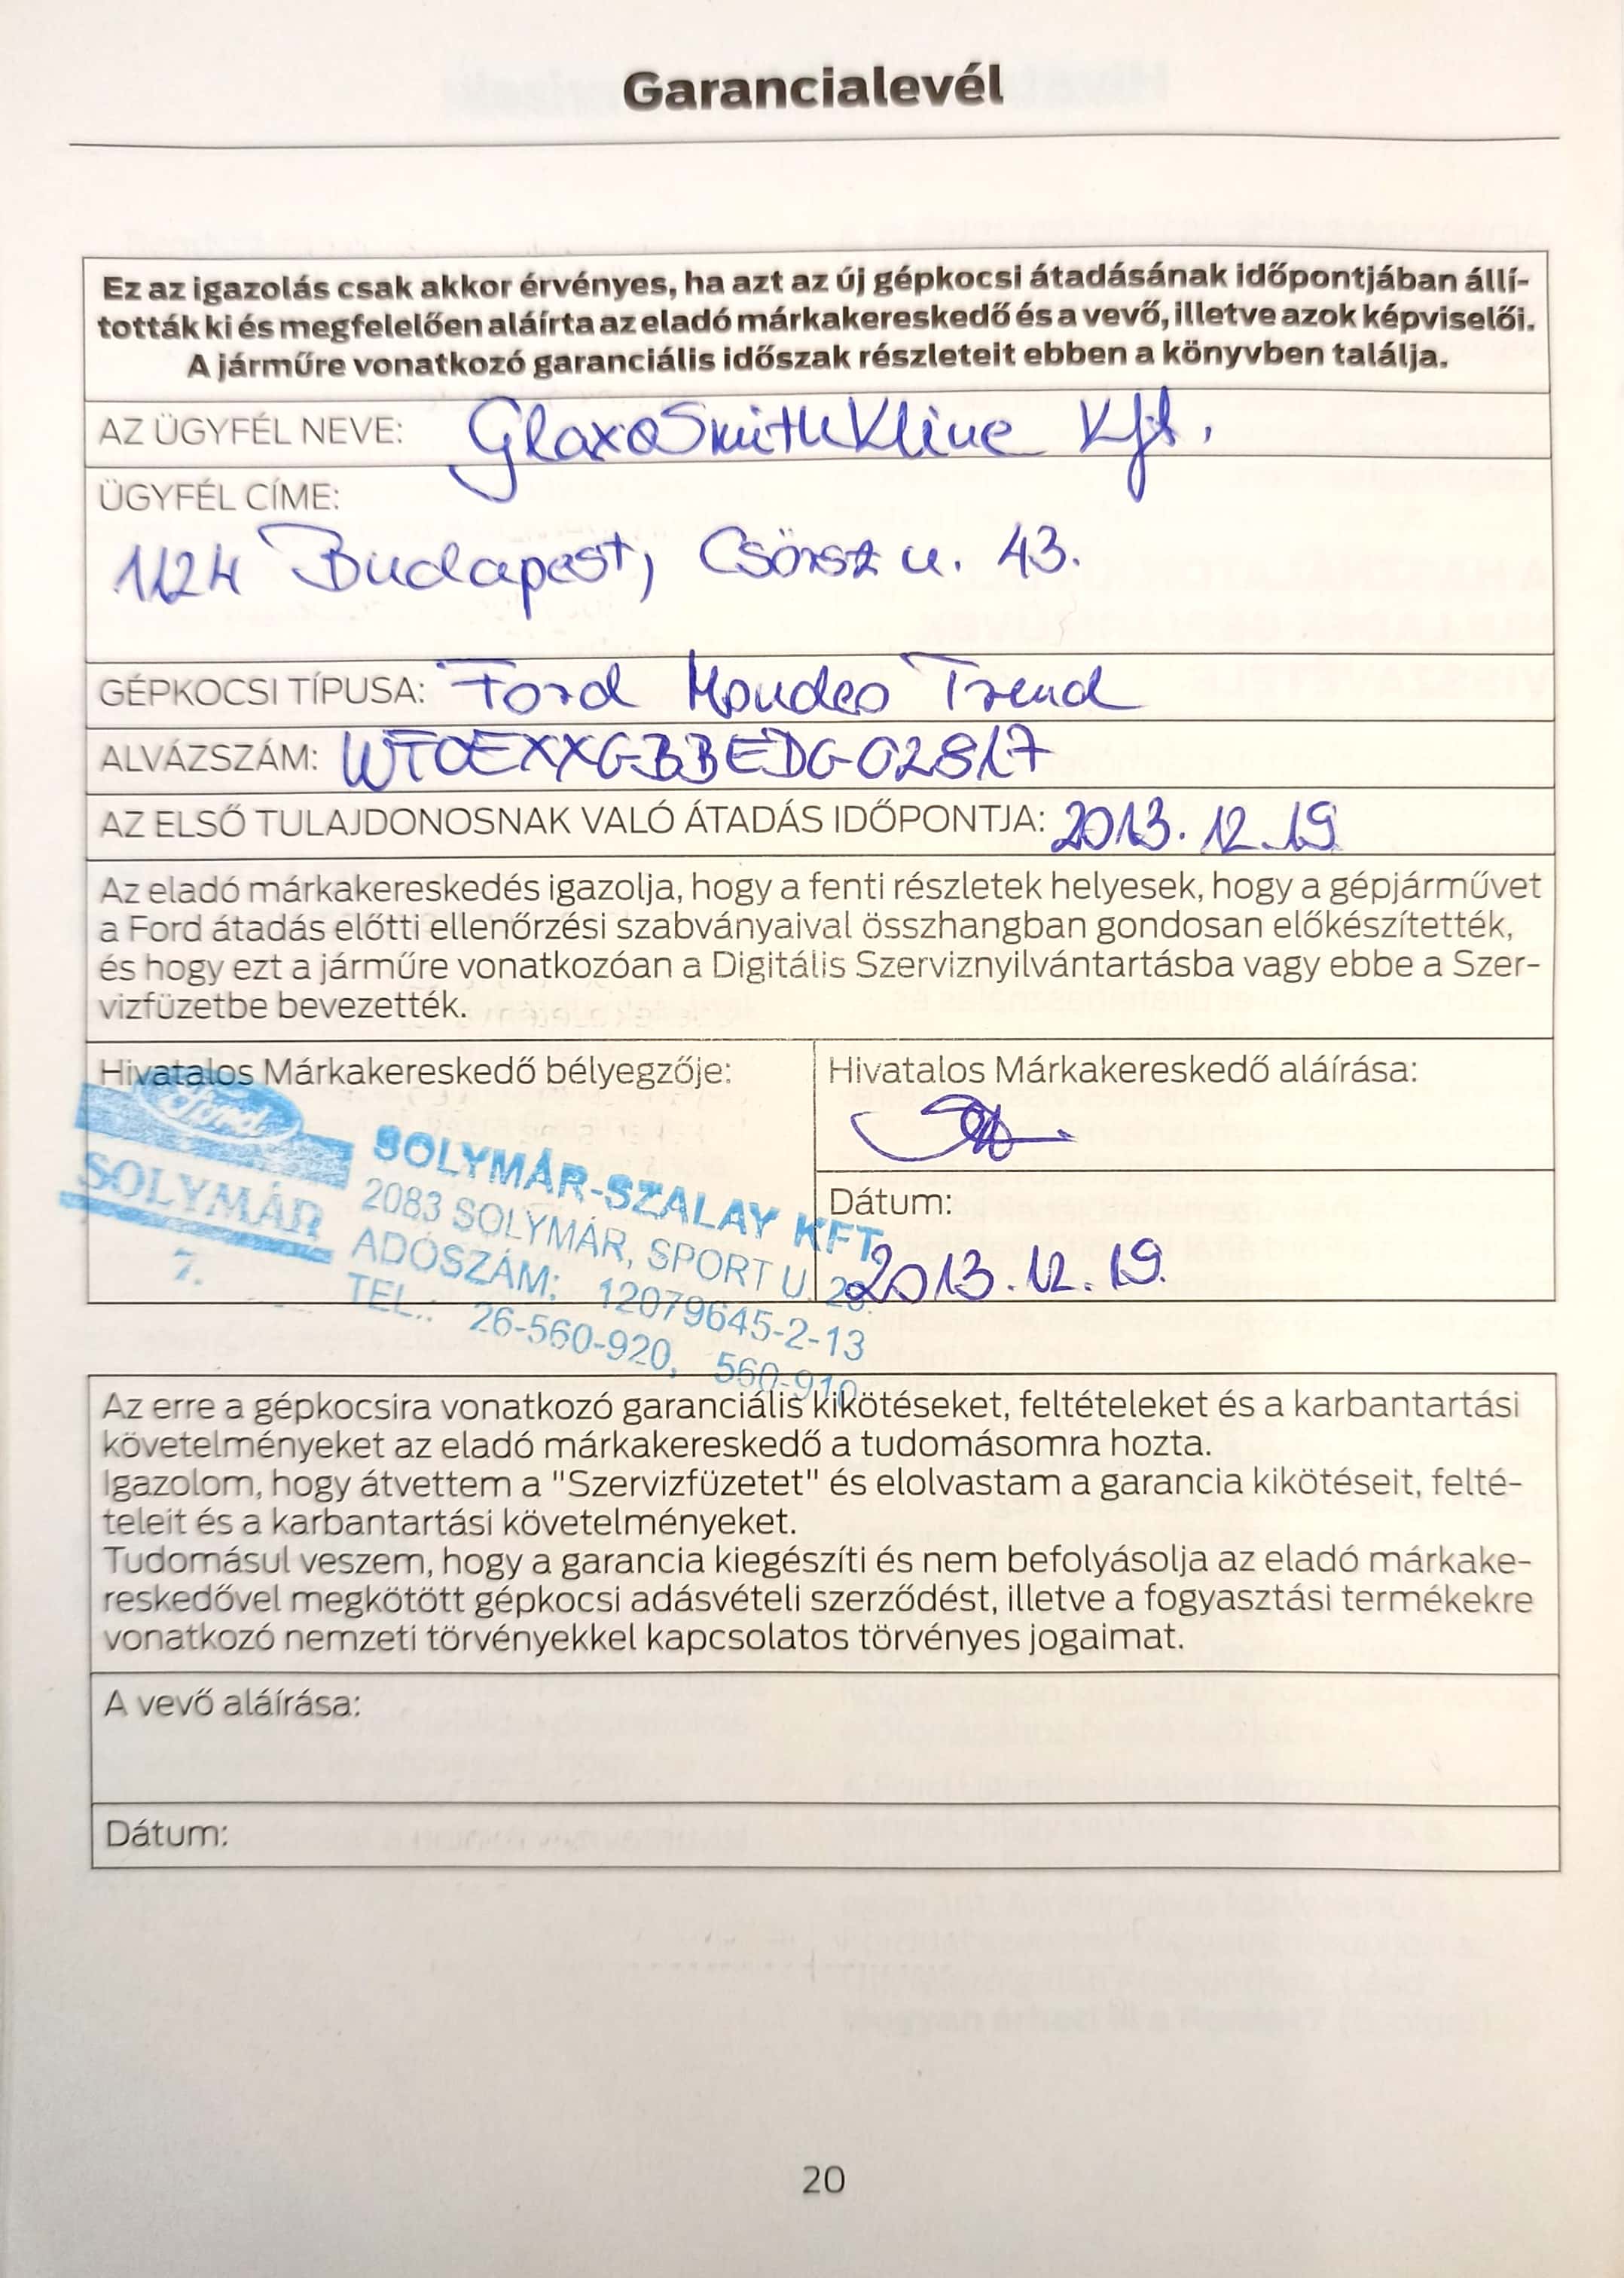 Garancialevél
Ez az igazolás csak akkor érvényes, ha azt az új gépkocsi átadásának időpontjában állí-
tották ki és megfelelően aláírta az eladó márkakereskedő és a vevő, illetve azok képviselői.
A járműre vonatkozó garanciális időszak részleteit ebben a könyvben találja.
AZ ÜGYFÉL NEVE: GlaxoSmithKline Kft.
ÜGYFÉL CÍME:
1124 Budapest, Csörsz u. 43.
GÉPKOCSI TÍPUSA: Ford Mondeo Trend
ALVÁZSZÁM: WF0EXXGBBEDG02817
AZ ELSŐ TULAJDONOSNAK VALÓ ÁTADÁS IDŐPONTJA: 2013.12.19
Az eladó márkakereskedés igazolja, hogy a fenti részletek helyesek, hogy a gépjárművet
a Ford átadás előtti ellenőrzési szabványaival összhangban gondosan előkészítették,
és hogy ezt a járműre vonatkozóan a Digitális Szerviznyilvántartásba vagy ebbe a Szer-
vizfüzetbe bevezették.
Hivatalos Márkakereskedő bélyegzője:
Ford
SOLYMÁR
7.
SOLYMÁR-SZALAY KFT.
2083 SOLYMÁR, SPORT U.
ADÓSZÁM: 12079645-2-13
TEL.: 26-560-920, 560-910
Hivatalos Márkakereskedő aláírása:
Dátum:
2013.12.19.
Az erre a gépkocsira vonatkozó garanciális kikötéseket, feltételeket és a karbantartási
követelményeket az eladó márkakereskedő a tudomásomra hozta.
Igazolom, hogy átvettem a "Szervizfüzetet" és elolvastam a garancia kikötéseit, felté-
teleit és a karbantartási követelményeket.
Tudomásul veszem, hogy a garancia kiegészíti és nem befolyásolja az eladó márkake-
reskedővel megkötött gépkocsi adásvételi szerződést, illetve a fogyasztási termékekre
vonatkozó nemzeti törvényekkel kapcsolatos törvényes jogaimat.
A vevő aláírása:
Dátum:
20